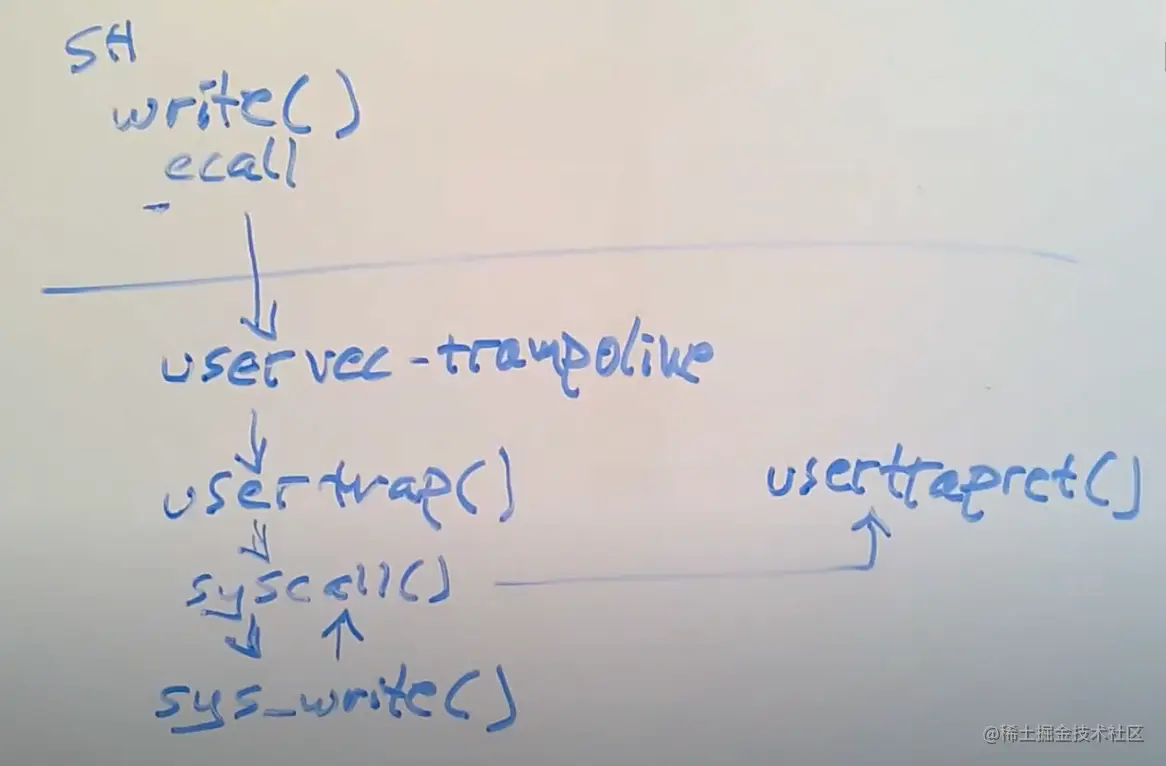 SH
write()
ecall
uservec-trampoline
usertrap()
usertrapret()
syscall()
sys_write()
@稀土掘金技术社区